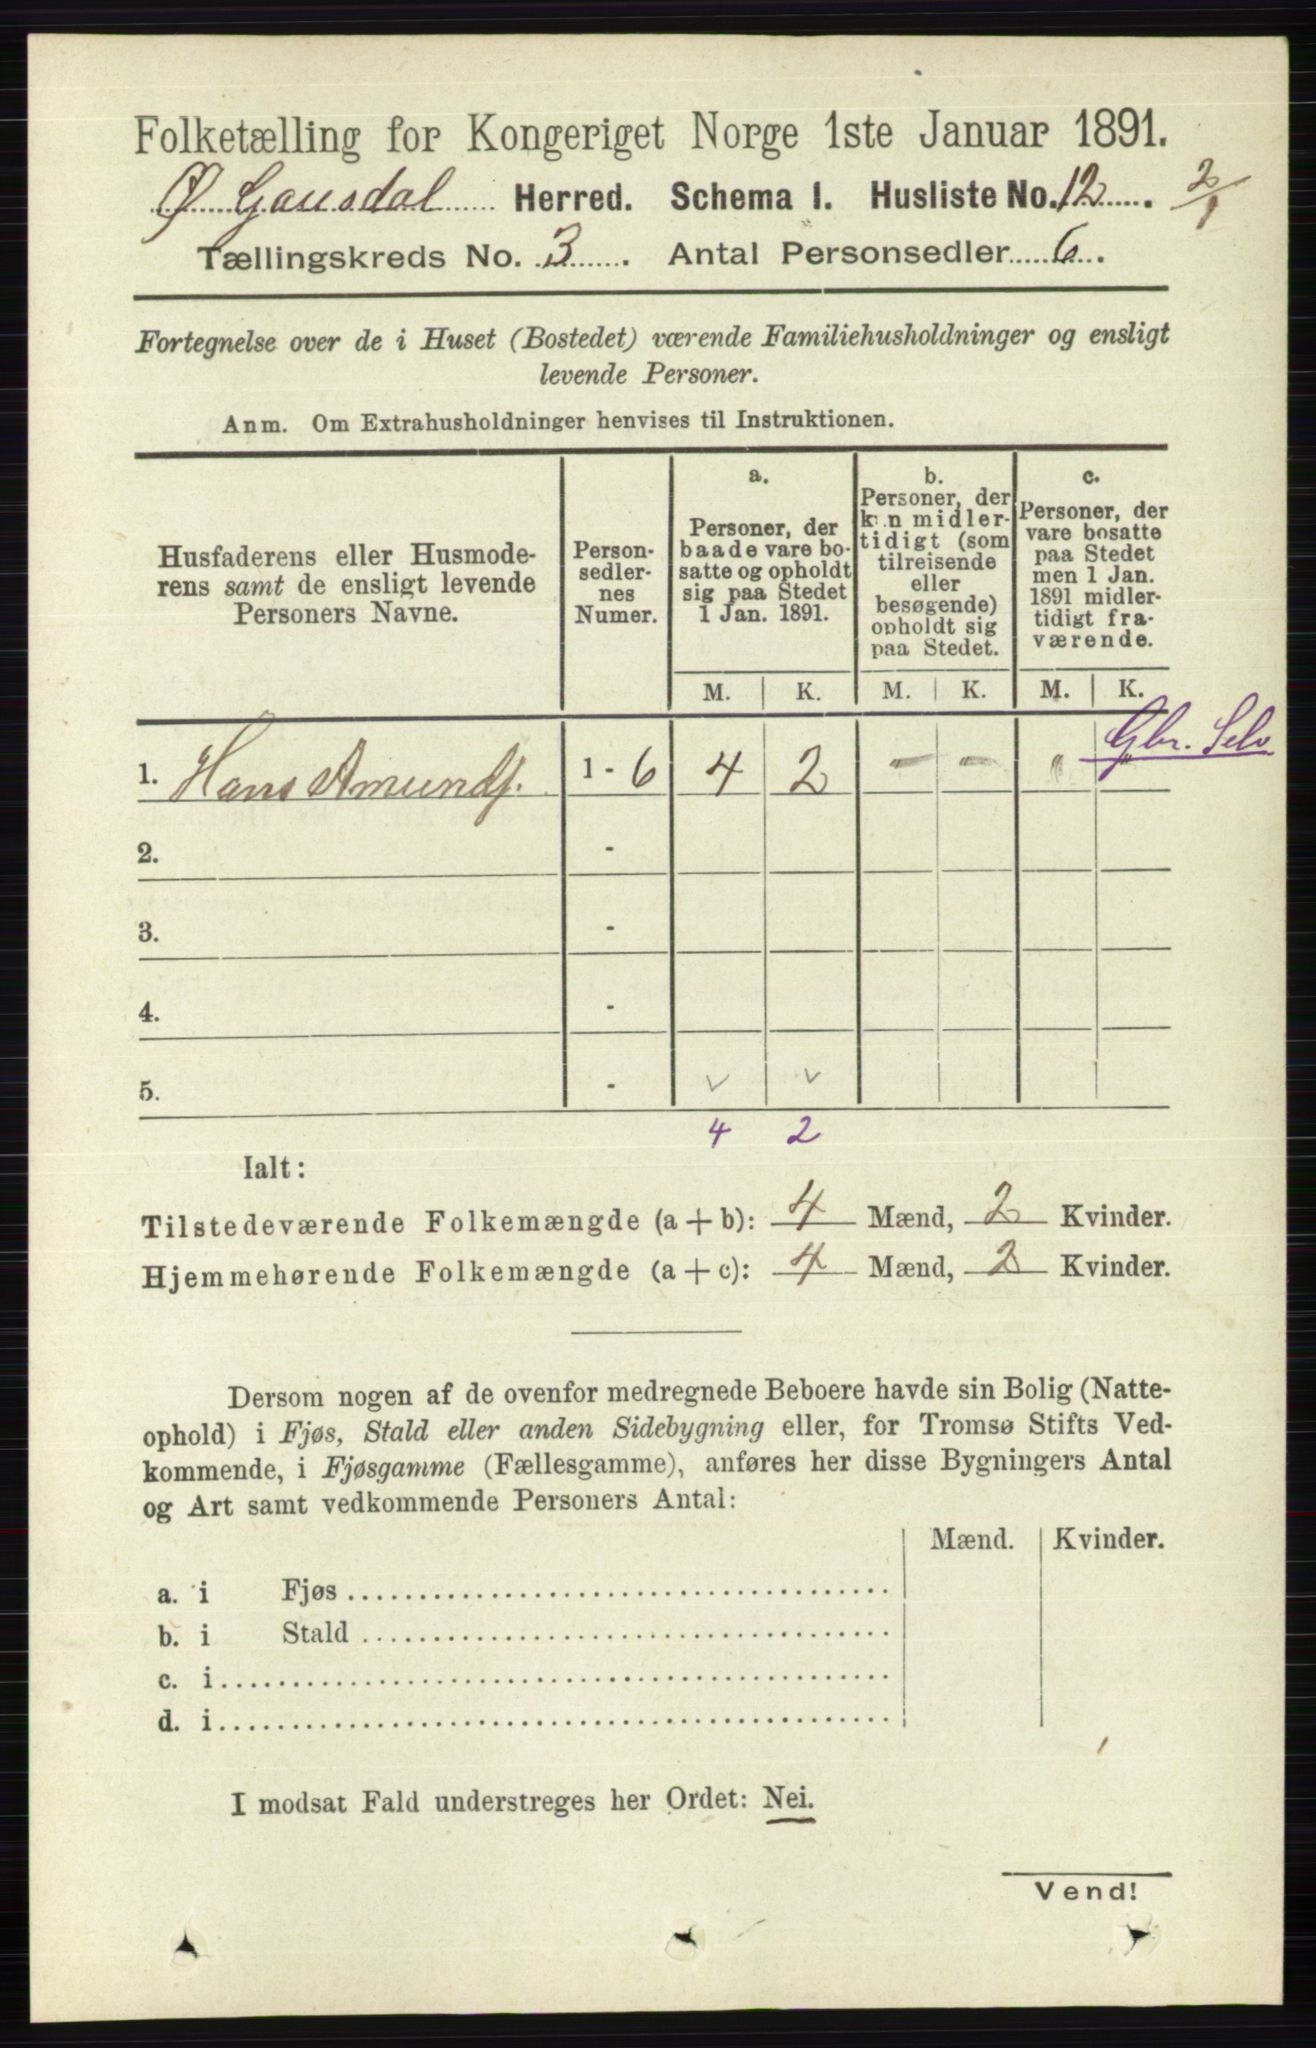 Folketælling for Kongeriget Norge 1ste Januar 1891.
Ø. Gausdal Herred. Schema I. Husliste No. 12. 2/1
Tællingskreds No. 3. Antal Personsedler 6.
Fortegnelse over de i Huset (Bostedet) værende Familiehusholdninger og ensligt
levende Personer.
Anm. Om Extrahusholdninger henvises til Instruktionen.
Husfaderens eller Husmode-
rens samt de ensligt levende
Personers Navne.
Person-
sedler-
nes
Numer.
a.
Personer, der
baade vare bo-
satte og opholdt
sig paa Stedet
1 Jan. 1891.
b.
Personer, der
kun midler-
tidigt (som
tilreisende
eller
besøgende)
opholdt sig
paa Stedet.
c.
Personer, der
vare bosatte
paa Stedet
men 1 Jan.
1891 midler-
tidigt fra-
værende.
M. K. M. K. M. K.
Gbr. Selv
1. Hans Amunds. 1 - 6 4 2 — — " "
2. -
3. -
4. -
5. - ✓ ✓
4 2
Ialt:
Tilstedeværende Folkemængde (a + b): 4 Mænd, 2 Kvinder.
Hjemmehørende Folkemængde (a + c): 4 Mænd, 2 Kvinder.
Dersom nogen af de ovenfor medregnede Beboere havde sin Bolig (Natte-
ophold) i Fjøs, Stald eller anden Sidebygning eller, for Tromsø Stifts Ved-
kommende, i Fjøsgamme (Fællesgamme), anføres her disse Bygningers Antal
og Art samt vedkommende Personers Antal:
Mænd. Kvinder.
a. i Fjøs
b. i Stald
c. i
d. i
I modsat Fald understreges her Ordet: Nei.
Vend!